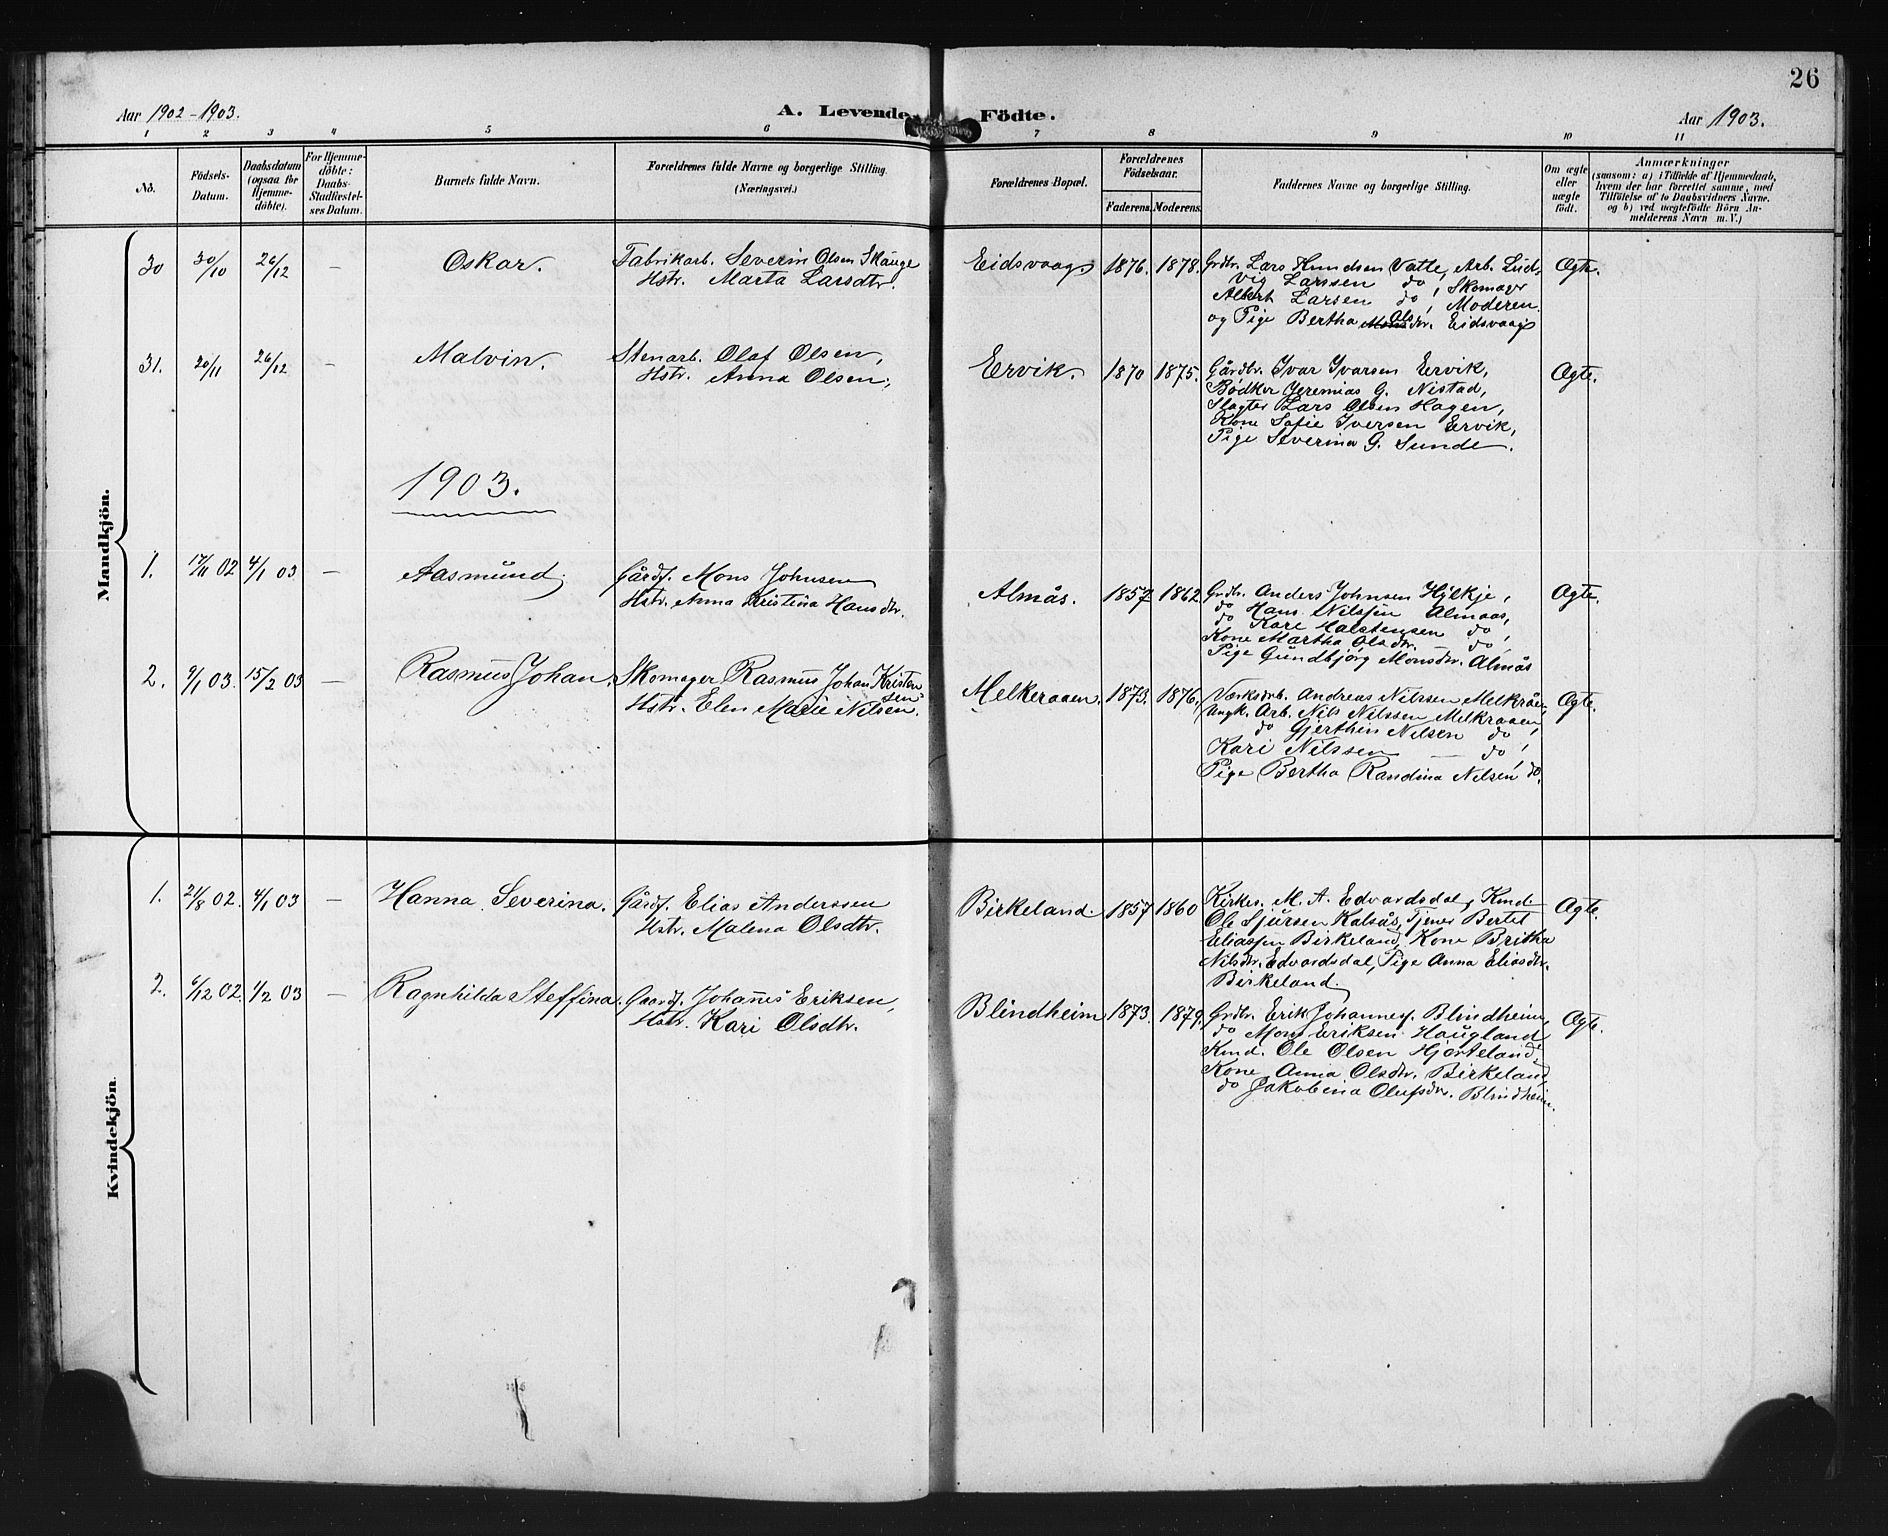 26
Aar 1902-1903.
A. Levende Födte.
Aar 1903.
1 2 3 4 5 6 7 8 9 10 11
No.
Födsels-Datum.
Daabsdatum (ogsaa för Hjemme-döbte).
For Hjemme-döbte: Daabs-Stadfæstel-ses Datum.
Barnets fulde Navn.
Forældrenes fulde Navne og borgerlige Stilling.
(Næringsvei.)
Forældrenes Bopæl.
Forældrenes Födselsaar.
Faderens. Moderens.
Faddernes Navne og borgerlige Stilling.
Om ægte eller uægte födt.
Anmærkninger
(saasom: a) i Tilfælde af Hjemmedaab,
hvem der har forrettet samme, med
Tilföielse af to Daabsvidners Navne.
og b) ved uægtefödte Börn An-
melderens Navn m. V.)
Mandkjön.
30 30/10 26/12 — Oskar. Fabrikarb. Severin Olsen Skauge
Hstr. Marta Larsdtr.
Eidsvaag 1876. 1878. Grdbr. Lars Knudsen Vatle, Arb. Lud-
vig Larssen do, Skomager
Albert Larsen do, Moderen
og Pige Bertha Olsdtr. Eidsvaag
Ægte.
31. 20/11 26/12 — Malvin. Stenarb. Olaf Olsen,
Hstr. Anna Olsen,
Eervik. 1870 1875. Gårdbr. Ivar Ivarsen Eervik,
Bødker Jeremias G. Nistad,
Slagter Lars Olsen Hagen,
Kone Sofie Iversen Ervik,
Pige Severina G. Sunde.
Ægte.
1903.
1. 17/11 02 4/1 03 — Aasmund. Gårdf. Mons Johnsen
Hstr. Anna Kristina Hansdtr.
Almås. 1857 1862. Grdbr. Anders Johnsen Hylkje,
do Hans Nilssen Almaas,
do Kare Halstensen do,
Kone Martha Olsdtr. do,
Pige Gundbjørg Monsdtr. Almås
Ægte.
2. 9/1 03. 15/2 03 — Rasmus Johan. Skomager Rasmus Johan Kristen
sen
Hstr. Elen Marie Nilsen.
Melkeraaen. 1873. 1876. Værksarb. Andreas Nilssen Melkråen,
Ungk. Arb. Nils Nilssen Melkraaen,
do Gjerthin Nilsen do,
Kari Nilssen — do,
Pige Bertha Randina Nilsen do.
Ægte.
Kvindekjön.
1. 21/8 02. 4/1 03 — Hanna Severina. Gårdf. Elias Anderssen
Hstr. Malena Olsdtr.
Birkeland. 1857 1860 Kirkes. M. A. Edvardsdal, Kmd.
Ole Sjursen Kalsås, Tjener Bertel
Eliassen Birkeland, Kone Britha
Nilsdtr. Edvardsdal, Pige Anna Eliasdtr.
Birkeland.
Ægte.
2. 6/12 02. 1/2 03 — Ragnhilda Steffina. Gaardf. Johannes Eriksen,
Hstr. Kari Olsdtr.
Blindheim 1873. 1879. Grdbr. Erik Johannes. Blindheim,
do Mons Eriksen Haugland,
Kmd. Ole Olsen Hjorteland,
Kone Anna Olsdtr. Birkeland,
do Jakobina Olufsdtr. Blindheim.
Ægte.